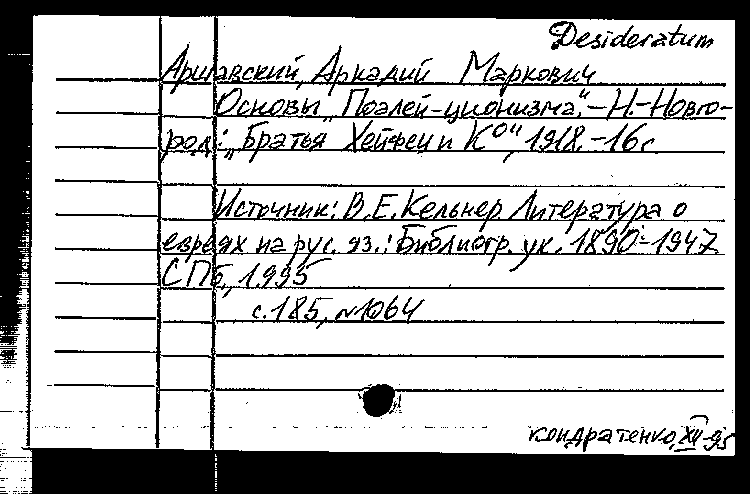 Desideratum
Аршавский, Аркадий Маркович
Основы „Поалей-ционизма“. – Н.-Новго-
род: „Братья Хейфец и К⁰“, 1918. – 16 с
Источник: В.Е. Кельнер Литература о
евреях на рус. яз.: Библиогр. ук. 1890-1947
СПб, 1995
с. 185, №1064
Кондратенко, XII-95